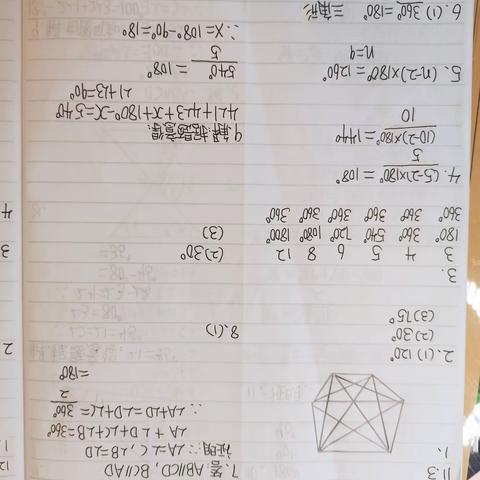 11.3
1.
2. (1) 120°
(2) 30°
(3) 75°
3.
3 4 5 6 8 12
180° 360° 540° 720° 1080° 1800°
360° 360° 360° 360° 360° 360°
4. (5-2)×180°/5 = 108°
(10-2)×180°/10 = 144°
5. (n-2)×180°=1260°
n=9
6. (1) 360°=180° 三角形
7. 答: AB//CD, BC//AD
证明: ∵∠A=∠C, ∠B=∠D
∠A+∠D+∠C+∠B=360°
∴∠A+∠D=∠D+∠C=360°/2
=180°
8. (1)
(2) 30°
(3)
9. 解: 根据题意得:
4∠1+4∠3+x+180°-x=540°
∠1+∠3=90°
540°/5 = 108°
∴x=108°-90°=18°